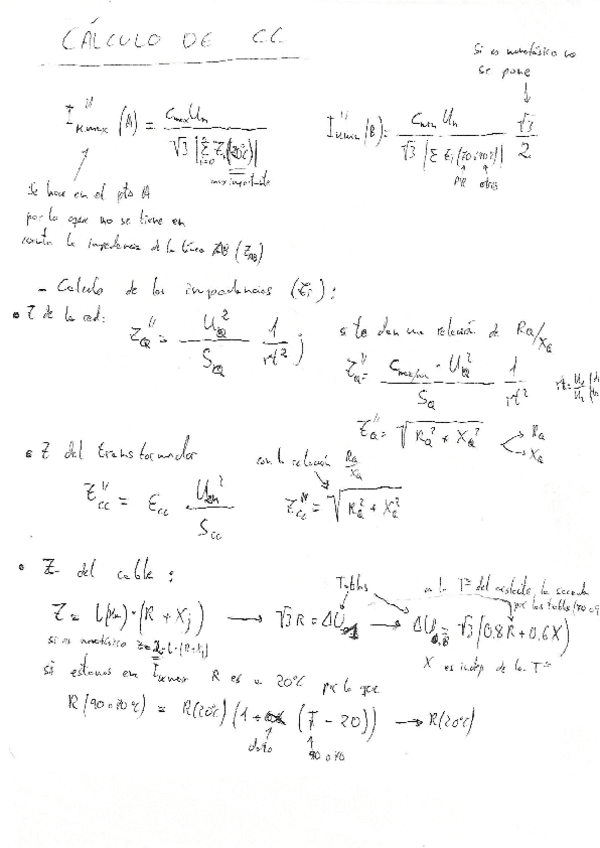 CÁLCULO DE CC
Si es monofásico no
se pone
I"kmax (A) = cmax Un / √3 |Σ Zi (20ºC)|
muy importante
I"kmin (B) = cmin Un / √3 |Σ Zi (70 o 90ºC)| √3 / 2
PVC otros
Se hace en el pto A
por lo que no se tiene en
cuenta la impedancia de la línea AB (ZAB)
- Calculo de las impedancias (Zi):
• Z de la red: ZQ" = UQ² / SkQ 1 / rt² j
si te dan una relación de RQ/XQ
ZQ" = cmax/min · UQ² / SQ 1 / rt²
ZQ" = √RQ² + XQ² → RQ → XQ
• Z del transformador
con la relación RQ/XQ
Zcc" = Ecc U² / Scc
Zcc" = √RQ² + XQ²
• Z del cable:
Tablas
Z = L(km) · (R + Xj) → √3 R = ΔU → ΔU0.8 = √3 (0.8R + 0.6X)
si es monofásico Z = 2 · L · (R + Xj)
X es indep de la Tª
si estamos en Ikmax R es a 20ºC por lo que
R(90 o 70ºC) = R(20ºC) (1 + α (T - 20)) → R(20ºC)
dato
90 o 70